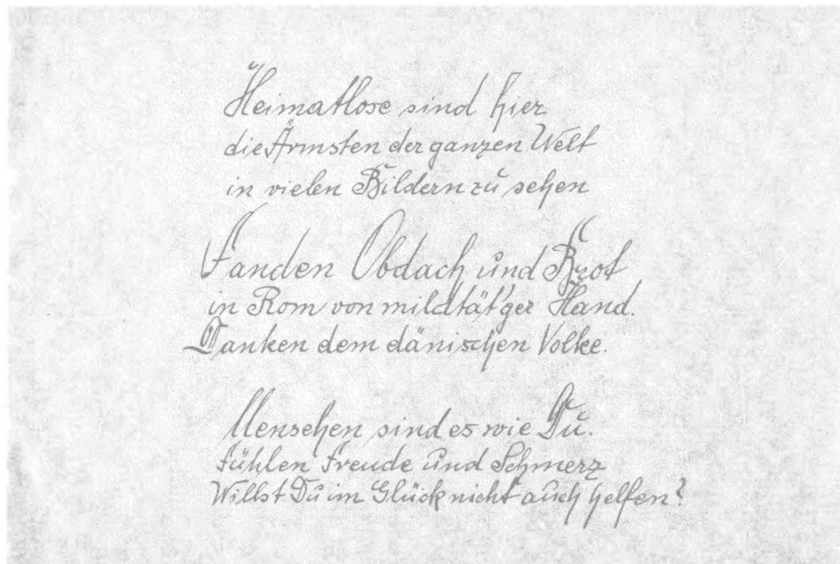 Heimatlose sind hier
die Ärmsten der ganzen Welt
in vielen Bildern zu sehen
Fanden Obdach und Brot
in Rom von mildtät'ger Hand.
Danken dem dänischen Volke.
Menschen sind es wie Du.
Fühlen Freude und Schmerz
Willst Du im Glück nicht auch helfen?